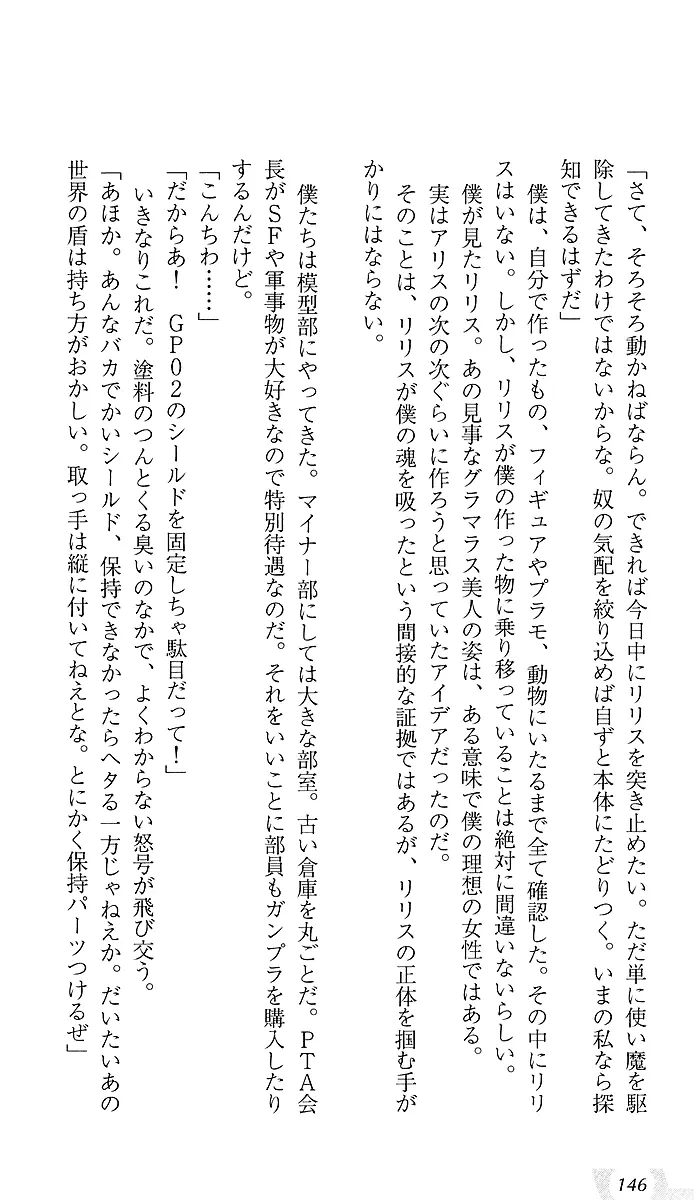 「さて、そろそろ動かねばならん。できれば今日中にリリスを突き止めたい。ただ単に使い魔を駆
除してきたわけではないからな。奴の気配を絞り込めば自ずと本体にたどりつく。いまの私なら探
知できるはずだ」
僕は、自分で作ったもの、フィギュアやプラモ、動物にいたるまで全て確認した。その中にリリ
スはいない。しかし、リリスが僕の作った物に乗り移っていることは絶対に間違いないらしい。
僕が見たリリス。あの見事なグラマラス美人の姿は、ある意味で僕の理想の女性ではある。
実はアリスの次の次ぐらいに作ろうと思っていたアイデアだったのだ。
そのことは、リリスが僕の魂を吸ったという間接的な証拠ではあるが、リリスの正体を掴む手が
かりにはならない。
僕たちは模型部にやってきた。マイナー部にしては大きな部室。古い倉庫を丸ごとだ。PTA会
長がSFや軍事物が大好きなので特別待遇なのだ。それをいいことに部員もガンプラを購入したり
するんだけど。
「こんちわ……」
「だからあ！　GP02のシールドを固定しちゃ駄目だって！」
いきなりこれだ。塗料のつんとくる臭いのなかで、よくわからない怒号が飛び交う。
「あほか。あんなバカでかいシールド、保持できなかったらヘタる一方じゃねえか。だいたいあの
世界の盾は持ち方がおかしい。取っ手は縦に付いてねえとな。とにかく保持パーツつけるぜ」
146